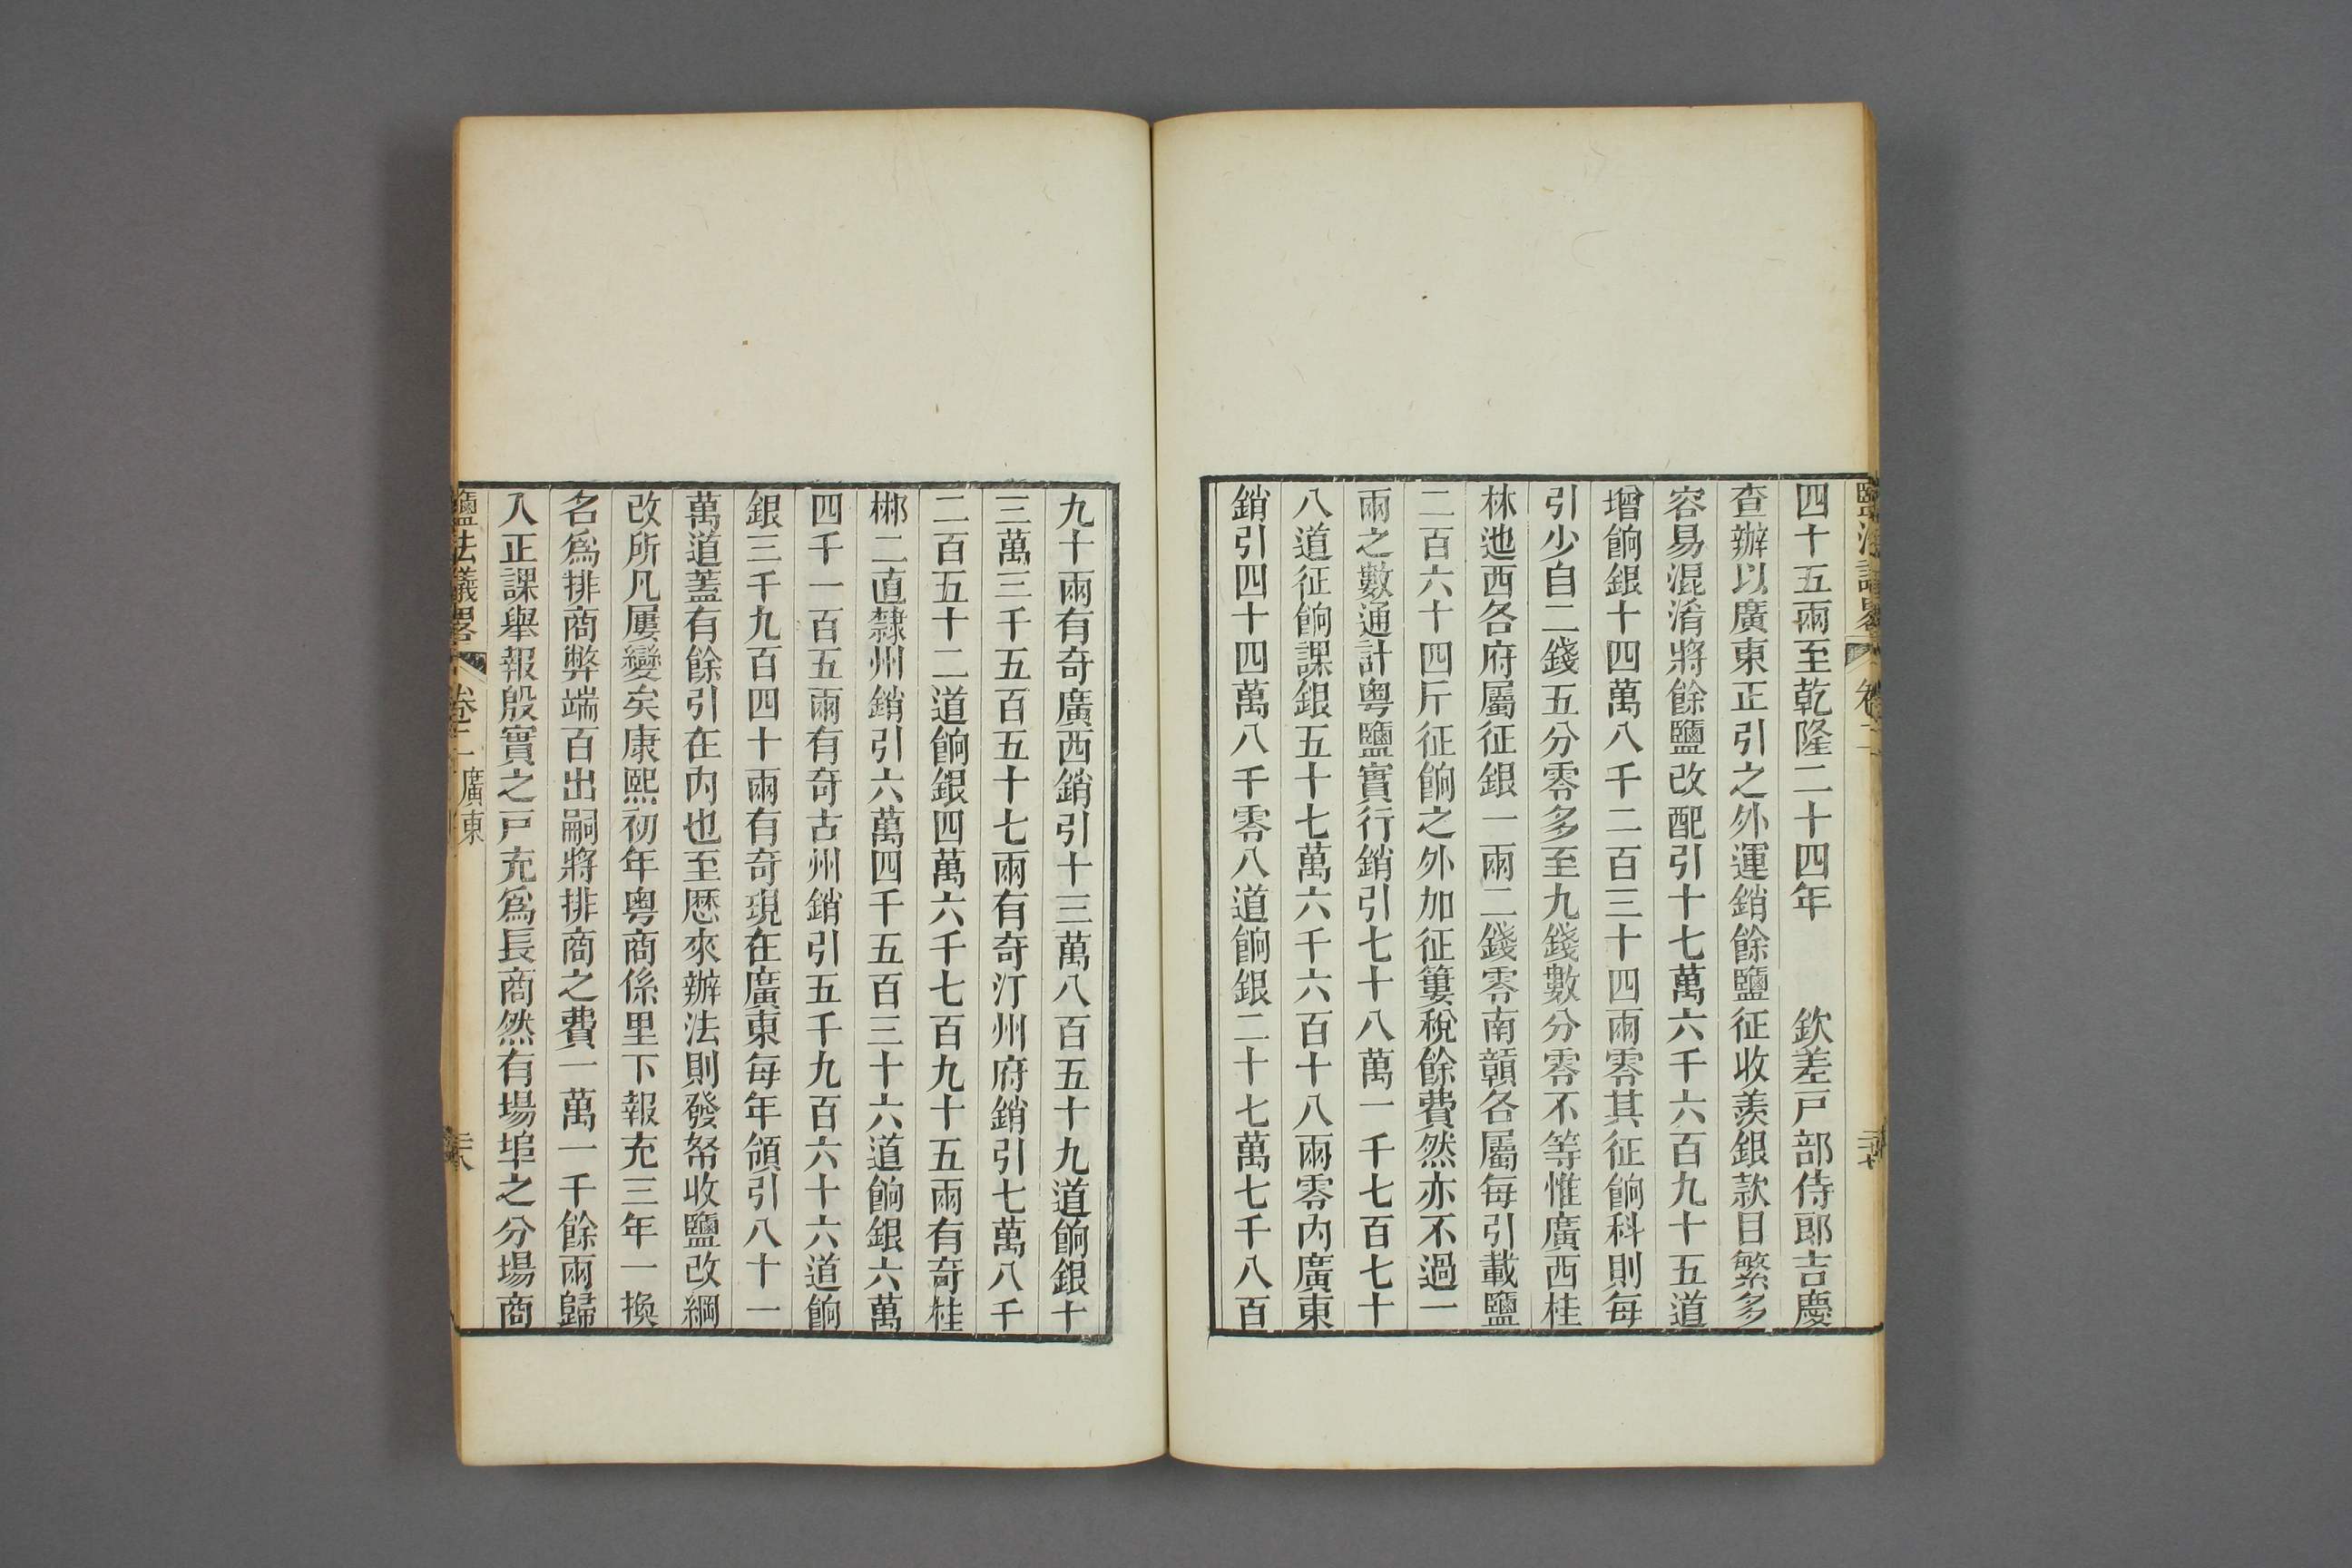 鹽法議畧 卷二
四十五兩至乾隆二十四年 欽差戸部侍郎吉慶
查辦以廣東正引之外運銷餘鹽征收羨銀款目繁多
容易混淆將餘鹽改配引十七萬六千六百九十五道
增餉銀十四萬八千二百三十四兩零其征餉科則每
引少自二錢五分零多至九錢數分零不等惟廣西桂
林池西各府屬征銀一兩二錢零南贛各屬每引載鹽
二百六十四斤征餉之外加征簍稅餘費然亦不過一
兩之數通計粤鹽實行銷引七十八萬一千七百七十
八道征餉課銀五十七萬六千六百十八兩零内廣東
銷引四十四萬八千零八道餉銀二十七萬七千八百
九十兩有奇廣西銷引十三萬八百五十九道餉銀十
三萬三千五百五十七兩有奇汀州府銷引七萬八千
二百五十二道餉銀四萬六千七百九十五兩有奇桂
郴二直隸州銷引六萬四千五百三十六道餉銀六萬
四千一百五兩有奇古州銷引五千九百六十六道餉
銀三千九百四十兩有奇現在廣東每年領引八十一
萬道蓋有餘引在内也至厯來辦法則發帑收鹽改綱
改所凡屢變矣康熙初年粤商係里下報充三年一換
名爲排商弊端百出嗣將排商之費一萬一千餘兩歸
入正課舉報殷實之戸充爲長商然有場埠之分場商
鹽法議畧 卷二 廣東 二十八